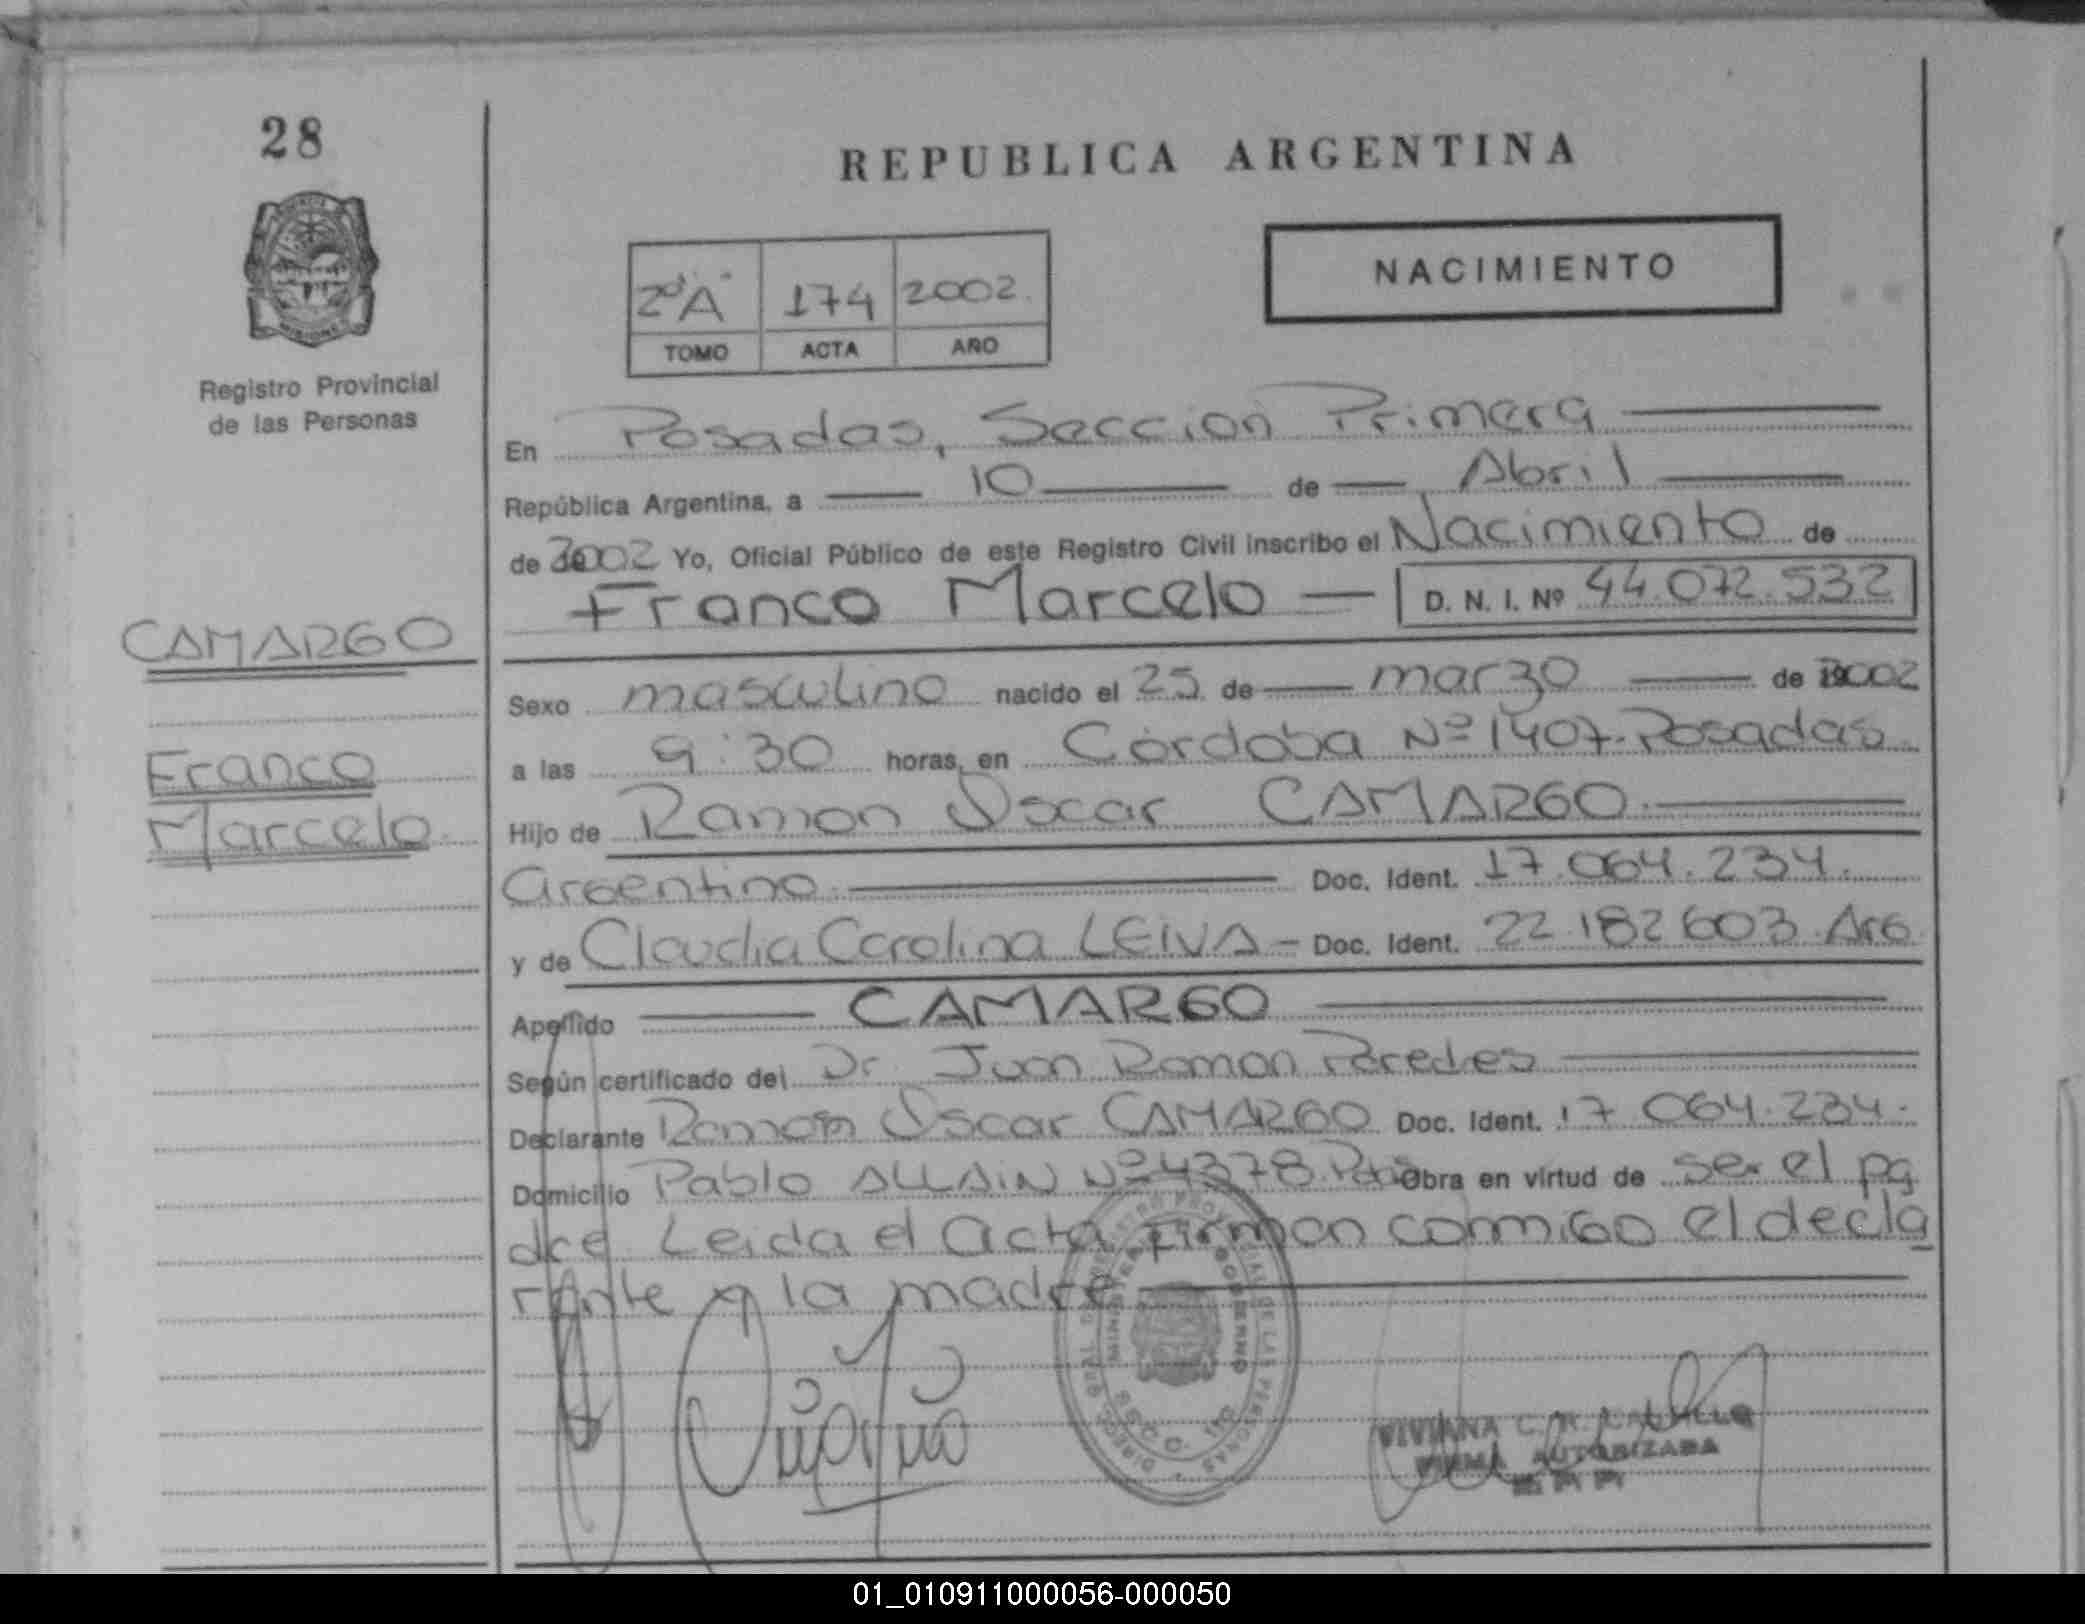 28
REPUBLICA ARGENTINA
2dº"A" 174 2002
TOMO ACTA AÑO
NACIMIENTO
Registro Provincial
de las Personas
En Posadas, Sección Primera
República Argentina, a 10 de Abril
de 2002 Yo, Oficial Público de este Registro Civil inscribo el Nacimiento de
Franco Marcelo D. N. I. Nº 44.072.532
CAMARGO
Franco
Marcelo
Sexo masculino nacido el 25 de marzo de 2002
a las 9:30 horas, en Córdoba Nº 1407. Posadas
Hijo de Ramon Oscar CAMARGO
argentino Doc. Ident. 17.064.234.
y de Claudia Carolina LEIVA - Doc. Ident. 22.182.603. Arg.
Apellido CAMARGO
Según certificado del Dr. Juan Ramon Paredes
Declarante Ramon Oscar CAMARGO Doc. Ident. 17.064.234.
Domicilio Pablo ALLAIN Nº 4378. Pdas Obra en virtud de ser el pa
dre. Leida el Acta firman conmigo el decla
rante y la madre
MINISTERIO GOBIERNO
VIVIANA C.
FIRMA AUTORIZADA
01_010911000056-000050